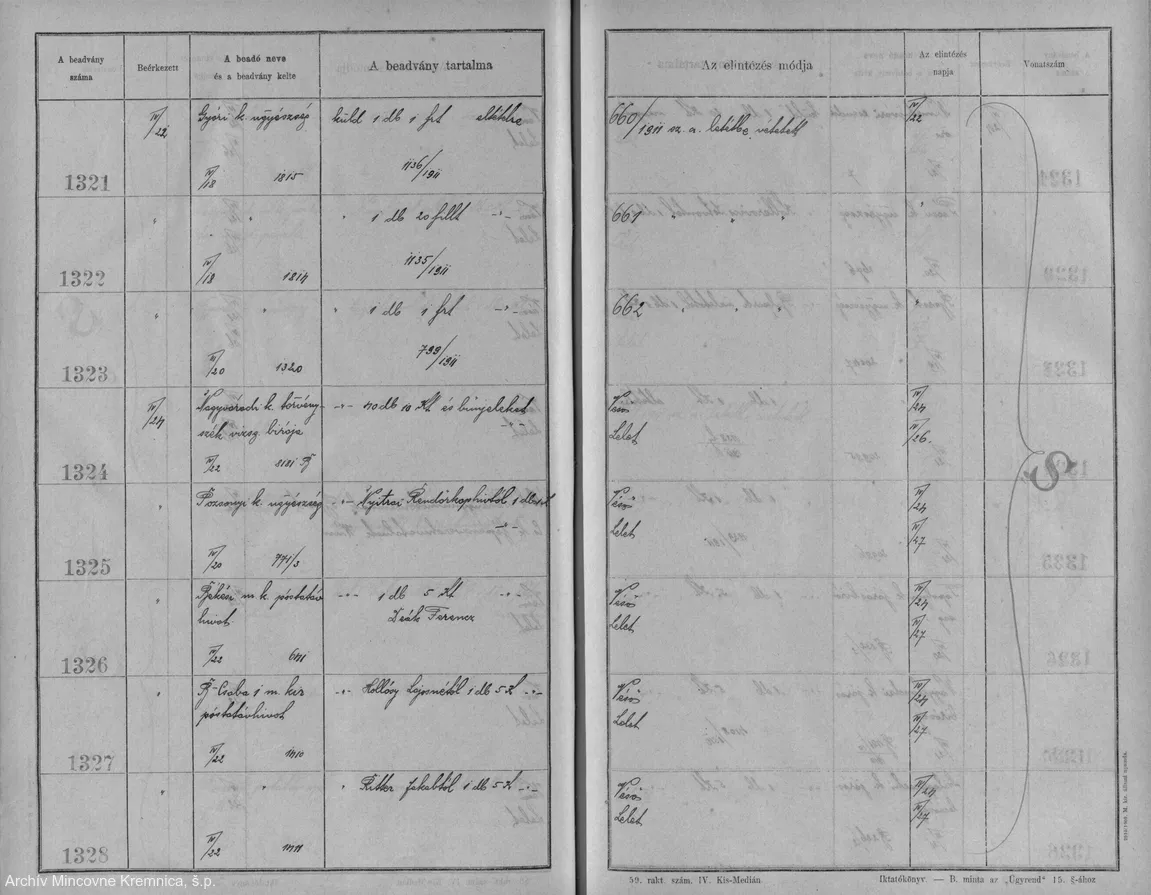 A beadvány száma
Beérkezett
A beadó neve és a beadvány kelte
A beadvány tartalma
Az elintézés módja
Az elintézés napja
Vonatszám
1321
IV/22
Győri k. ügyészség
küld 1 db 1 frt
660/1911 sz. a. letétbe vétetett
IV/22
IV/18 1815
1136/1911
1322
" " " 1 db 20 fillt -"-
661 " " "
IV/18 1814
1135/1911
1323
" " " 1 db 1 frt -"-
662 " " "
IV/20 1320
799/1911
1324
IV/24
Nagyváradi k. törvény-
szék vizsg. birája
-"- 40 db 10 Kt és bünjeleket
-"-
Véső
Lelet
IV/24
IV/26.
IV/22
1325
"
Pozsonyi k. ügyészség
-"- Nyitrai Rendőrkap
-"-
Véső
Lelet
IV/24
IV/27
IV/20 771/3
1326
"
Békési m. k. postatáv
hivat.
-"- 1 db 5 Kt -"-
Deák Ferencz
Véső
Lelet
IV/24
IV/27
IV/22 641
1327
"
B-Csaba 1 m. kir
postatávhivat
-"- Hollósy Lajosnétól 1 db 5 K -"-
Véső
Lelet
IV/24
IV/27
IV/22
1328
" "
" Ritter Jakabtól 1 db 5 K -"-
Véső
Lelet
IV/24
IV/27
IV/22
59. rakt. szám. IV. Kis-Medián
Iktatókönyv. — B. minta az „Ügyrend" 15. §-ához
Archív Mincovne Kremnica, š.p.